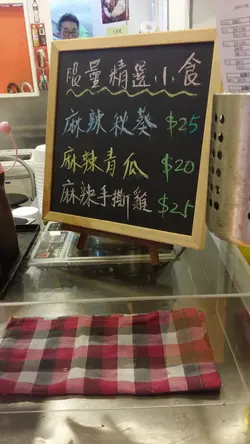 限量精選小食
麻辣秋葵 $25
麻辣青瓜 $20
麻辣手撕雞 $25